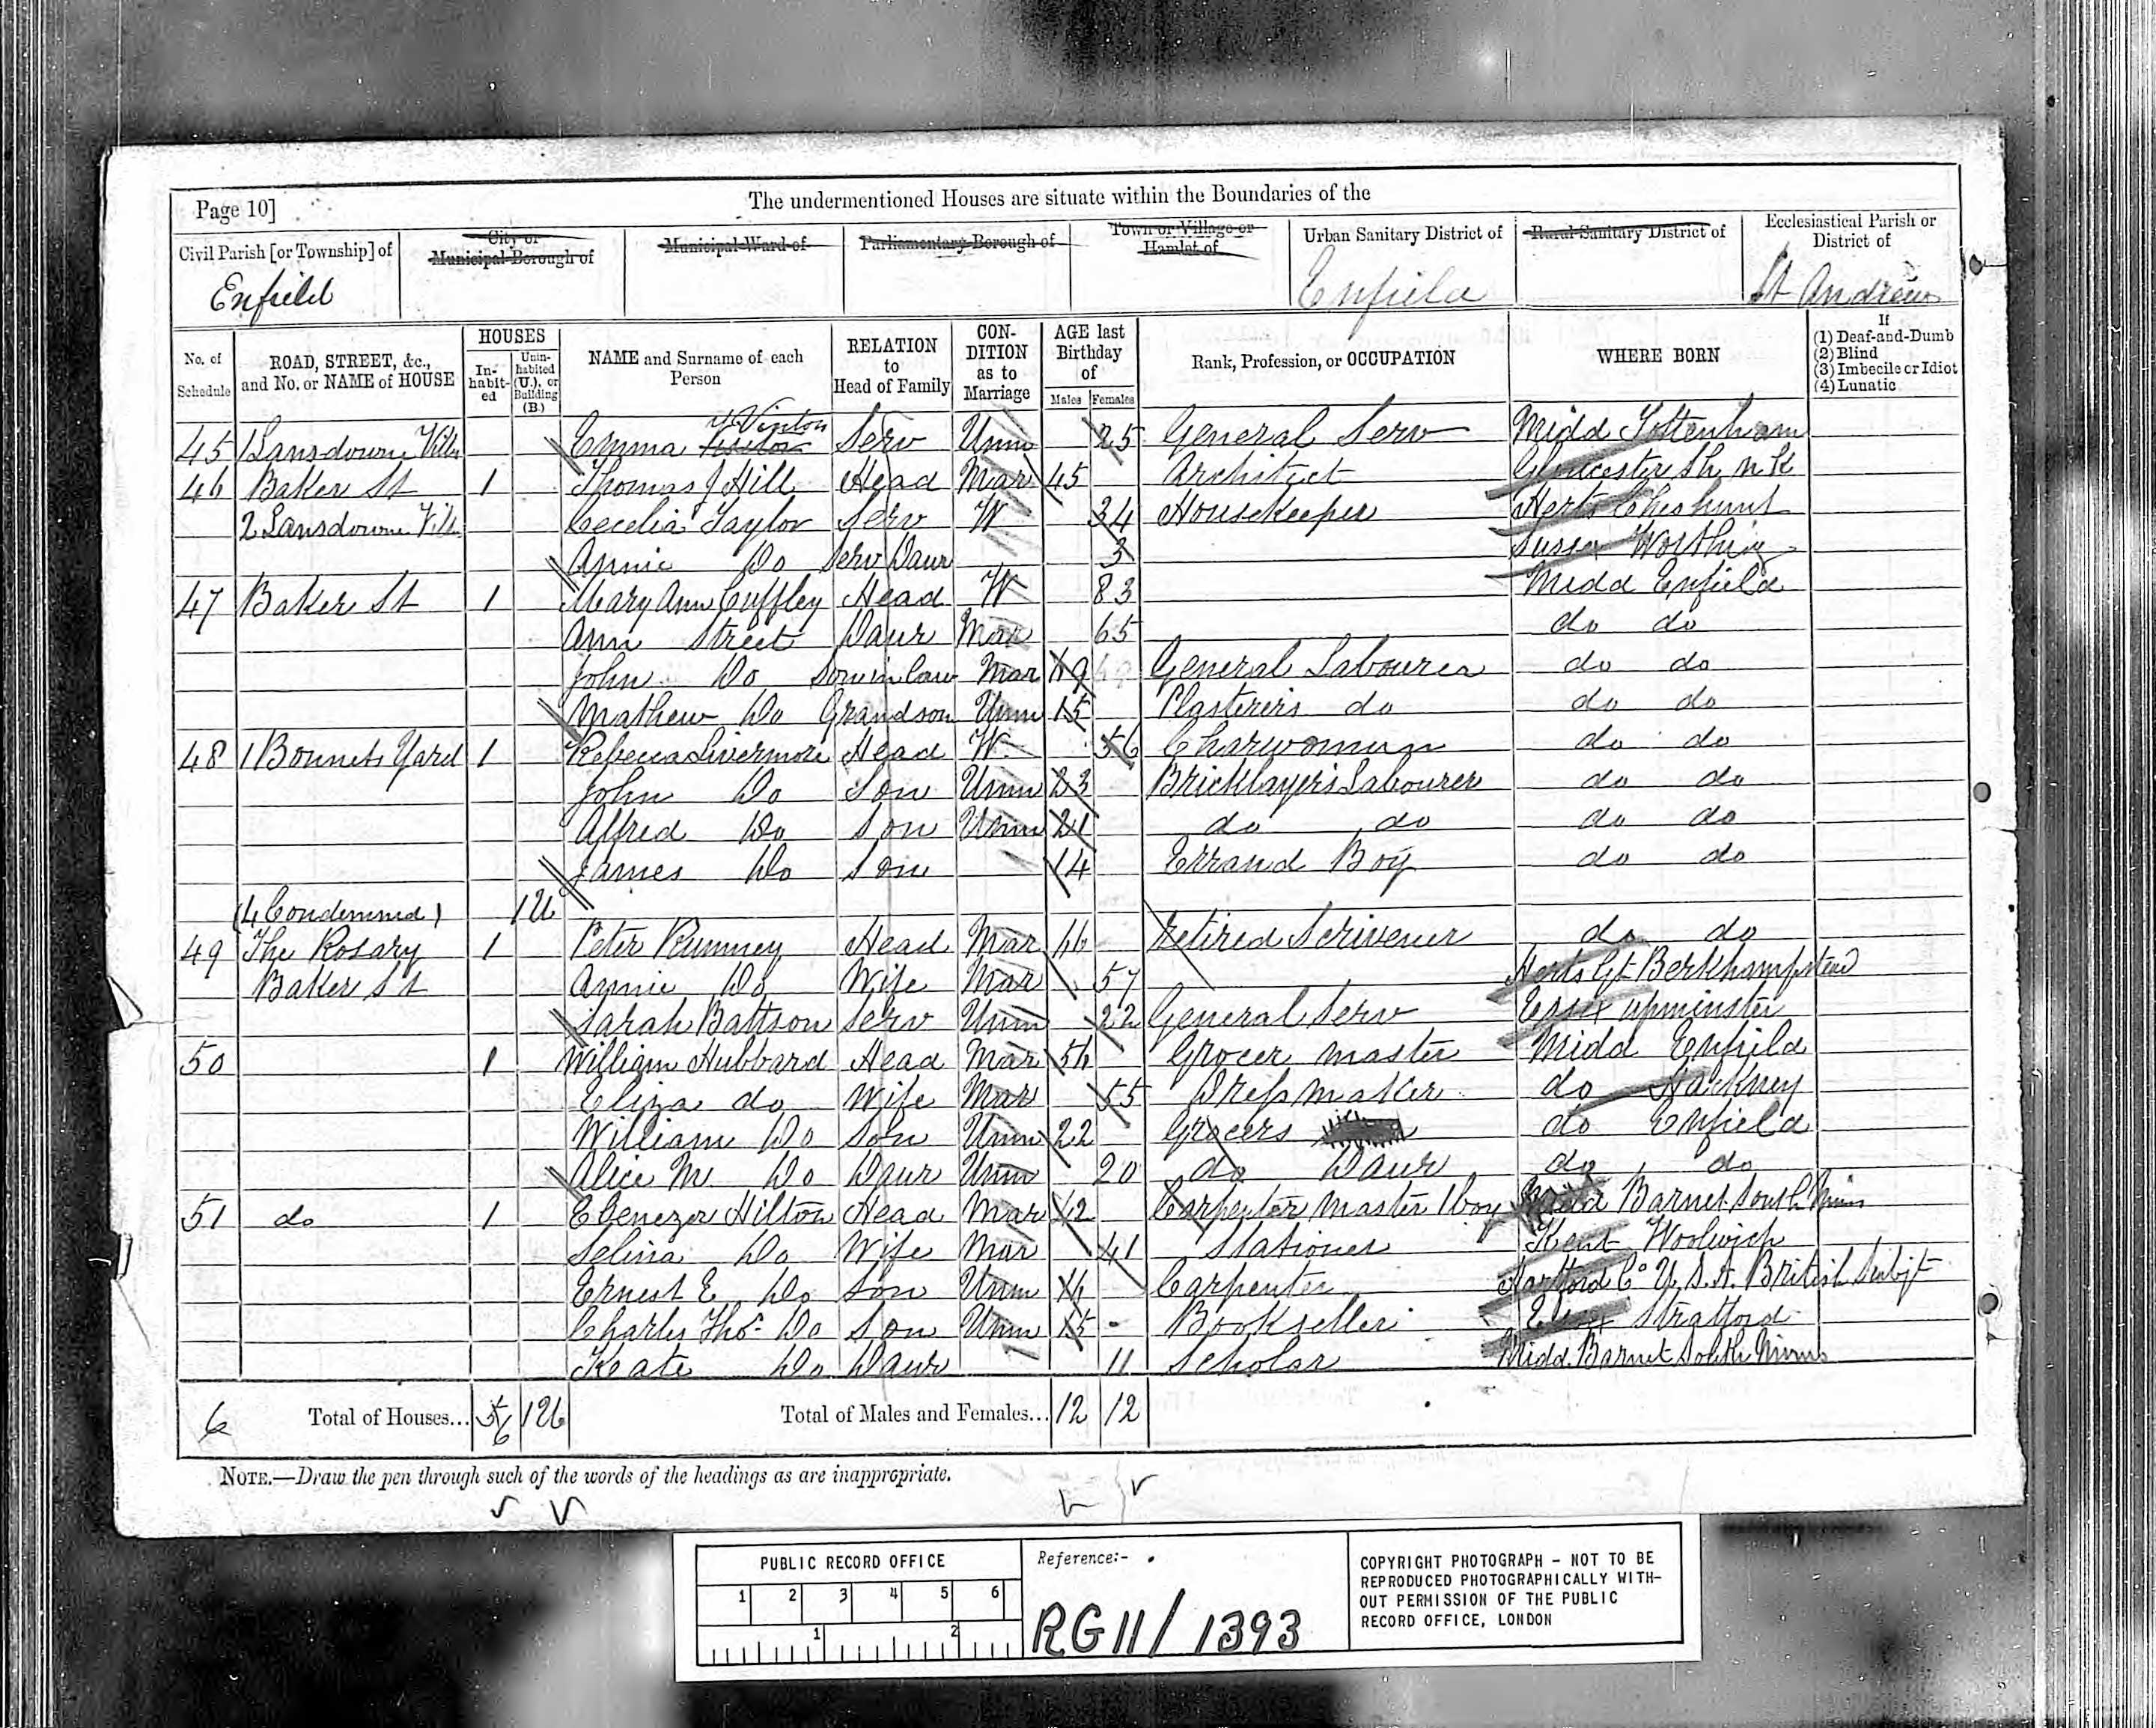 Page 10]
The undermentioned Houses are situate within the Boundaries of the
Civil Parish [or Township] of
City or Municipal Borough of
Municipal Ward of
Parliamentary Borough of
Town or Village or Hamlet of
Urban Sanitary District of
Rural Sanitary District of
Ecclesiastical Parish or District of
Enfield Enfield St Andrew
No. of Schedule
ROAD, STREET, &c., and No. or NAME of HOUSE
HOUSES
Inhabited
Uninhabited (U.), or Building (B.)
NAME and Surname of each Person
RELATION to Head of Family
CONDITION as to Marriage
AGE last Birthday of
Males Females
Rank, Profession, or OCCUPATION
WHERE BORN
If
(1) Deaf-and-Dumb
(2) Blind
(3) Imbecile or Idiot
(4) Lunatic
45 1 Lansdown Villas Emma Vinton Serv Unm 25 General Serv Midd Tottenham
46 Baker St 1 Thomas J Hill Head Mar 45 Architect Gloucestersh N.K
2 Lansdowne Vill Cecelia Taylor Serv W 34 Housekeeper Herts Cheshunt
Annie Do Serv Daur 3 Sussex Worthing
47 Baker St 1 Mary Ann Cuffley Head W 83 Midd Enfield
Ann Street Daur Mar 65 do do
John Do Son in law Mar General Labourer do do
Mathew Do Grandson Unm 15 Plasterers do do do
48 1 Bonnets Yard 1 Rebecca Livermore Head W 56 Charwoman do do
John Do Son Unm 23 Bricklayers Labourer do do
Alfred Do Son Unm 21 do do do do
James Do Son 14 Errand Boy do do
(4 Condemned) 1U
49 The Rosary 1 Peter Rumney Head Mar Retired Scrivener do do
Baker St Annie Do Wife Mar 57 Herts Gt Berkhampstead
Sarah Battson Serv Unm 22 General Serv Essex Upminster
50 1 William Hubbard Head Mar Grocer Master Midd Enfield
Eliza do Wife Mar 55 Dress maker do Hackney
William Do Son Unm 22 Grocers do Enfield
Alice M Do Daur Unm 20 do Daur do do
51 do 1 Ebenezer Hilton Head Mar 42 Carpenter Master 1 boy Midd Barnet South Mims
Selina Do Wife Mar 41 Stationer Kent Woolwich
Ernest E Do Son Unm Carpenter Hartford Co U.S.A. British Subjt
Charles Thos Do Son Unm 15 Bookseller Essex Stratford
Kate Do Daur 11 Scholar Midd Barnet South Mims
6 Total of Houses... 1U Total of Males and Females... 12 12
NOTE.—Draw the pen through such of the words of the headings as are inappropriate.
PUBLIC RECORD OFFICE
1 2 3 4 5 6
1 2
Reference:-
RG 11 / 1393
COPYRIGHT PHOTOGRAPH - NOT TO BE
REPRODUCED PHOTOGRAPHICALLY WITH-
OUT PERMISSION OF THE PUBLIC
RECORD OFFICE, LONDON